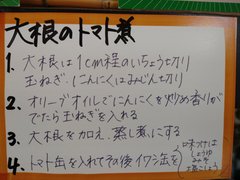 大根のトマト煮
1. 大根は1cm程のいちょう切り
玉ねぎ、にんにくはみじん切り
2. オリーブオイルでにんにくを炒め香りが
でたら玉ねぎを入れる
3. 大根を加え、蒸し煮にする
4. トマト缶を入れてその後イワシ缶を
味つけは
しょうゆ
みそ
塩こしょう